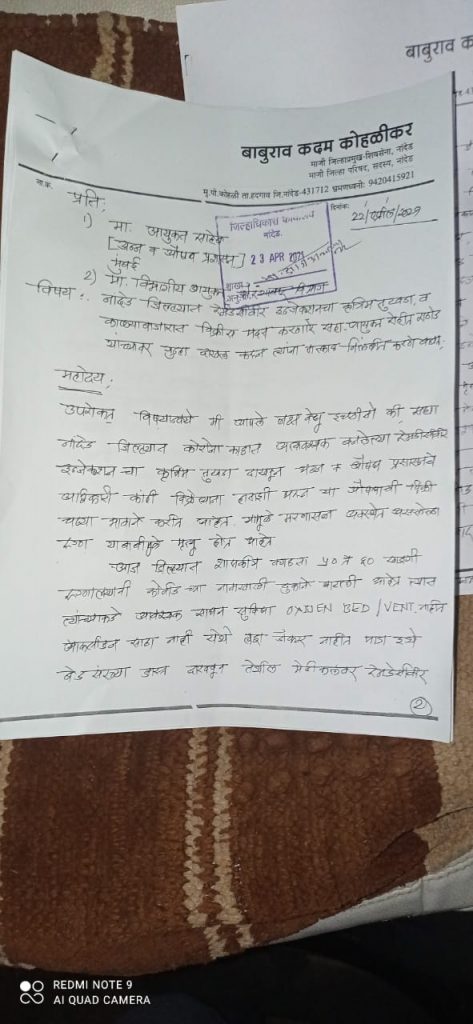 बाबुराव क
बाबुराव कदम कोहळीकर
माजी जिल्हाप्रमुख-शिवसेना, नांदेड
माजी जिल्हा परिषद, सदस्य, नांदेड
मु.पो.कोहळी ता.हदगाव जि.नांदेड-431712 भ्रमणध्वनी: 9420415921
जा.क्र.
दिनांक: 22/एप्रील/2021
प्रति,
जिल्हाधिकारी कार्यालय
नांदेड.
23 APR 2021
1) मा. आयुक्त साहेब
[अन्न व औषध प्रशासन]
मुंबई
2) मा. विभागीय आयुक्त
विषय:. नांदेड जिल्ह्यात रेमडेसीवीर इंजेक्शनचा कृत्रिम तुटवडा, व
काळ्याबाजारात विक्रीस मदत करणारे सहा. आयुक्त रोहीत राठोड
यांच्यावर गुन्हा दाखल करून त्यांना तात्काळ निलंबीत करणे बाबत.
महोदय,
उपरोक्त विषयान्वये मी आपले लक्ष वेधू इच्छीतो की, सध्या
नांदेड जिल्ह्यात कोरोना काळात अत्यावश्यक असलेल्या रेमडेसीवीर
इंजेक्शन चा कृत्रिम तुटवडा दाखवून अन्न व औषध प्रशासनाचे
अधिकारी काही विक्रेत्यांना हाताशी धरून या औषधाची विक्री
चढ्या भावाने करीत आहेत. यामुळे मरणासन्न अवस्थेत असलेल्या
रुग्ण यांचा मृत्यू होत आहे
आज जिल्ह्यात शासकीय वगळता 50 ते 60 खाजगी
रुग्णालयांनी कोवीड च्या नावाखाली दुकाने थाटली आहेत त्यात
त्यांच्याकडे आवश्यक साधन सुविधा OXIJEN BED / VENT. नाहीत
ऑक्सीजन साठा नाही येथे तज्ञ डॉक्टर नाहीत मात्र इथे
बेड संख्या जास्त दाखवून तेथील मेडीकलवर रेमडेसीवीर
2
REDMI NOTE 9
AI QUAD CAMERA